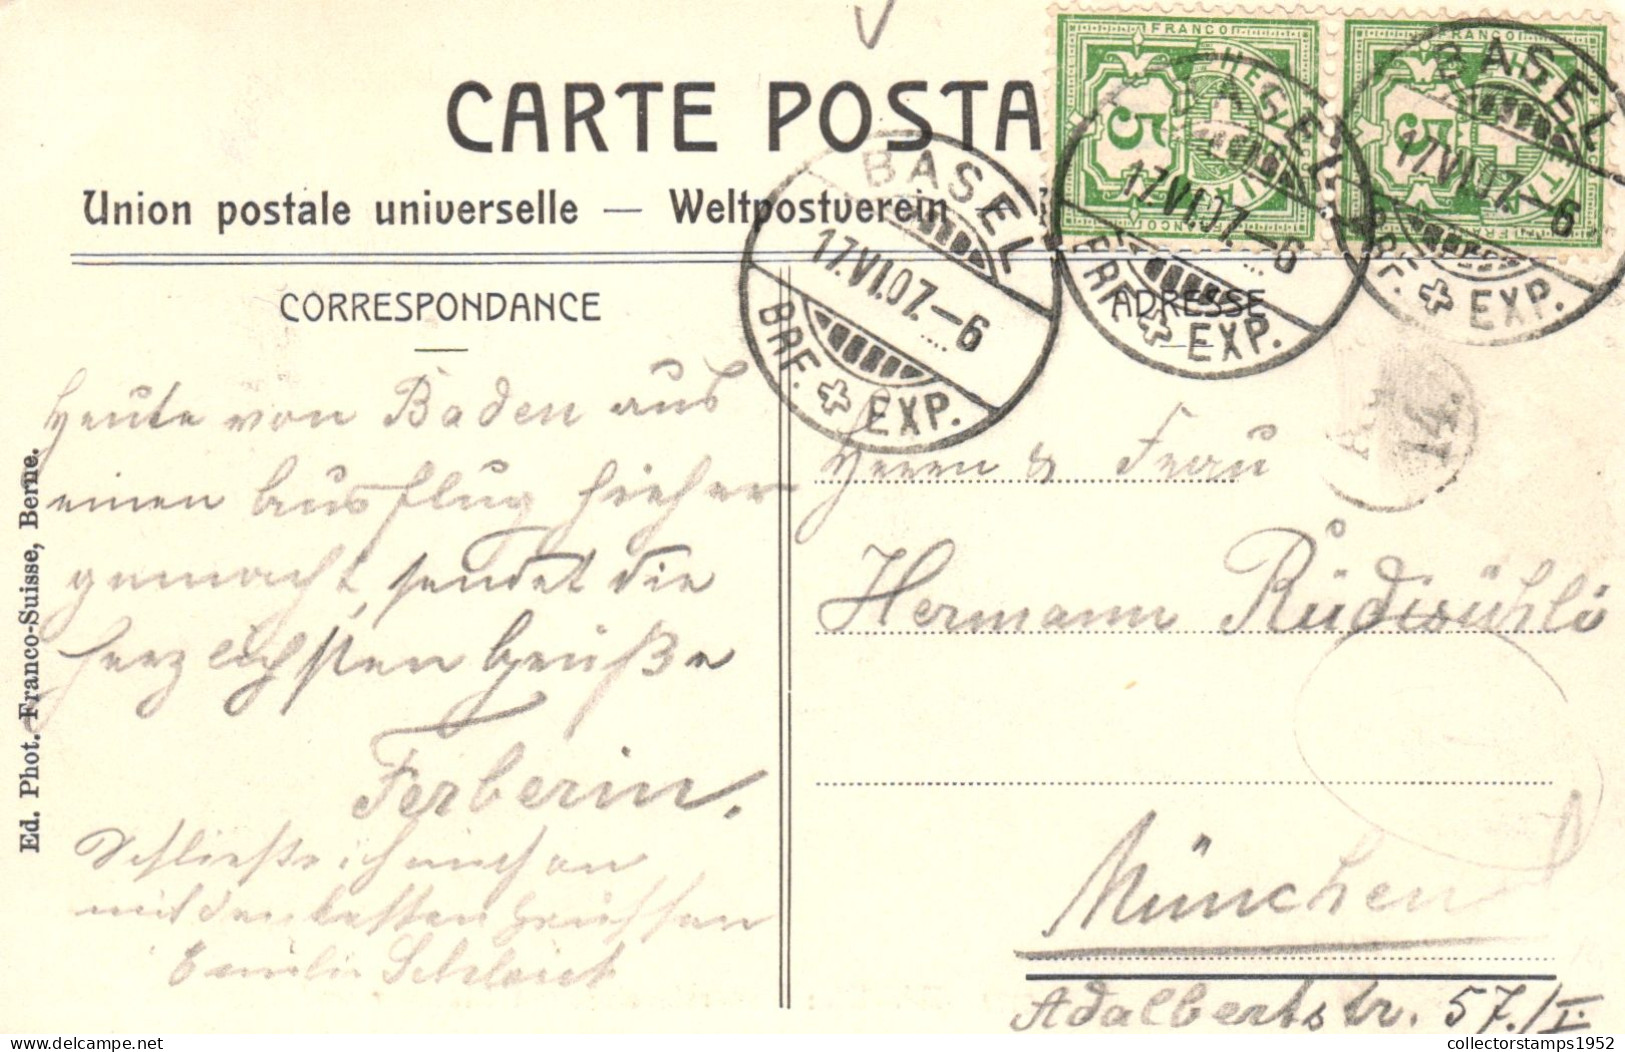 CARTE POSTA
Union postale universelle — Weltpostverein
FRANCO
HELVETIA
5
FRANCO
5
BASEL
17.VI.07.–6
BRF. EXP.
BASEL
17.VI.07.–6
BRF. EXP.
BASEL
17.VI.07.–6
BRF. EXP.
CORRESPONDANCE
Heute von Baden aus
einen Ausflug hieher
gemacht, sendet die
herzlichsten Grüße
Ferberin.
Schließe ich mich an
mit den besten Grüssen
Emilie
Ed. Phot. Franco-Suisse, Berne.
ADRESSE
14.
Herrn & Frau
Hermann Rüdisühli
München
Adalbertstr. 57./I.
collectorstamps1952